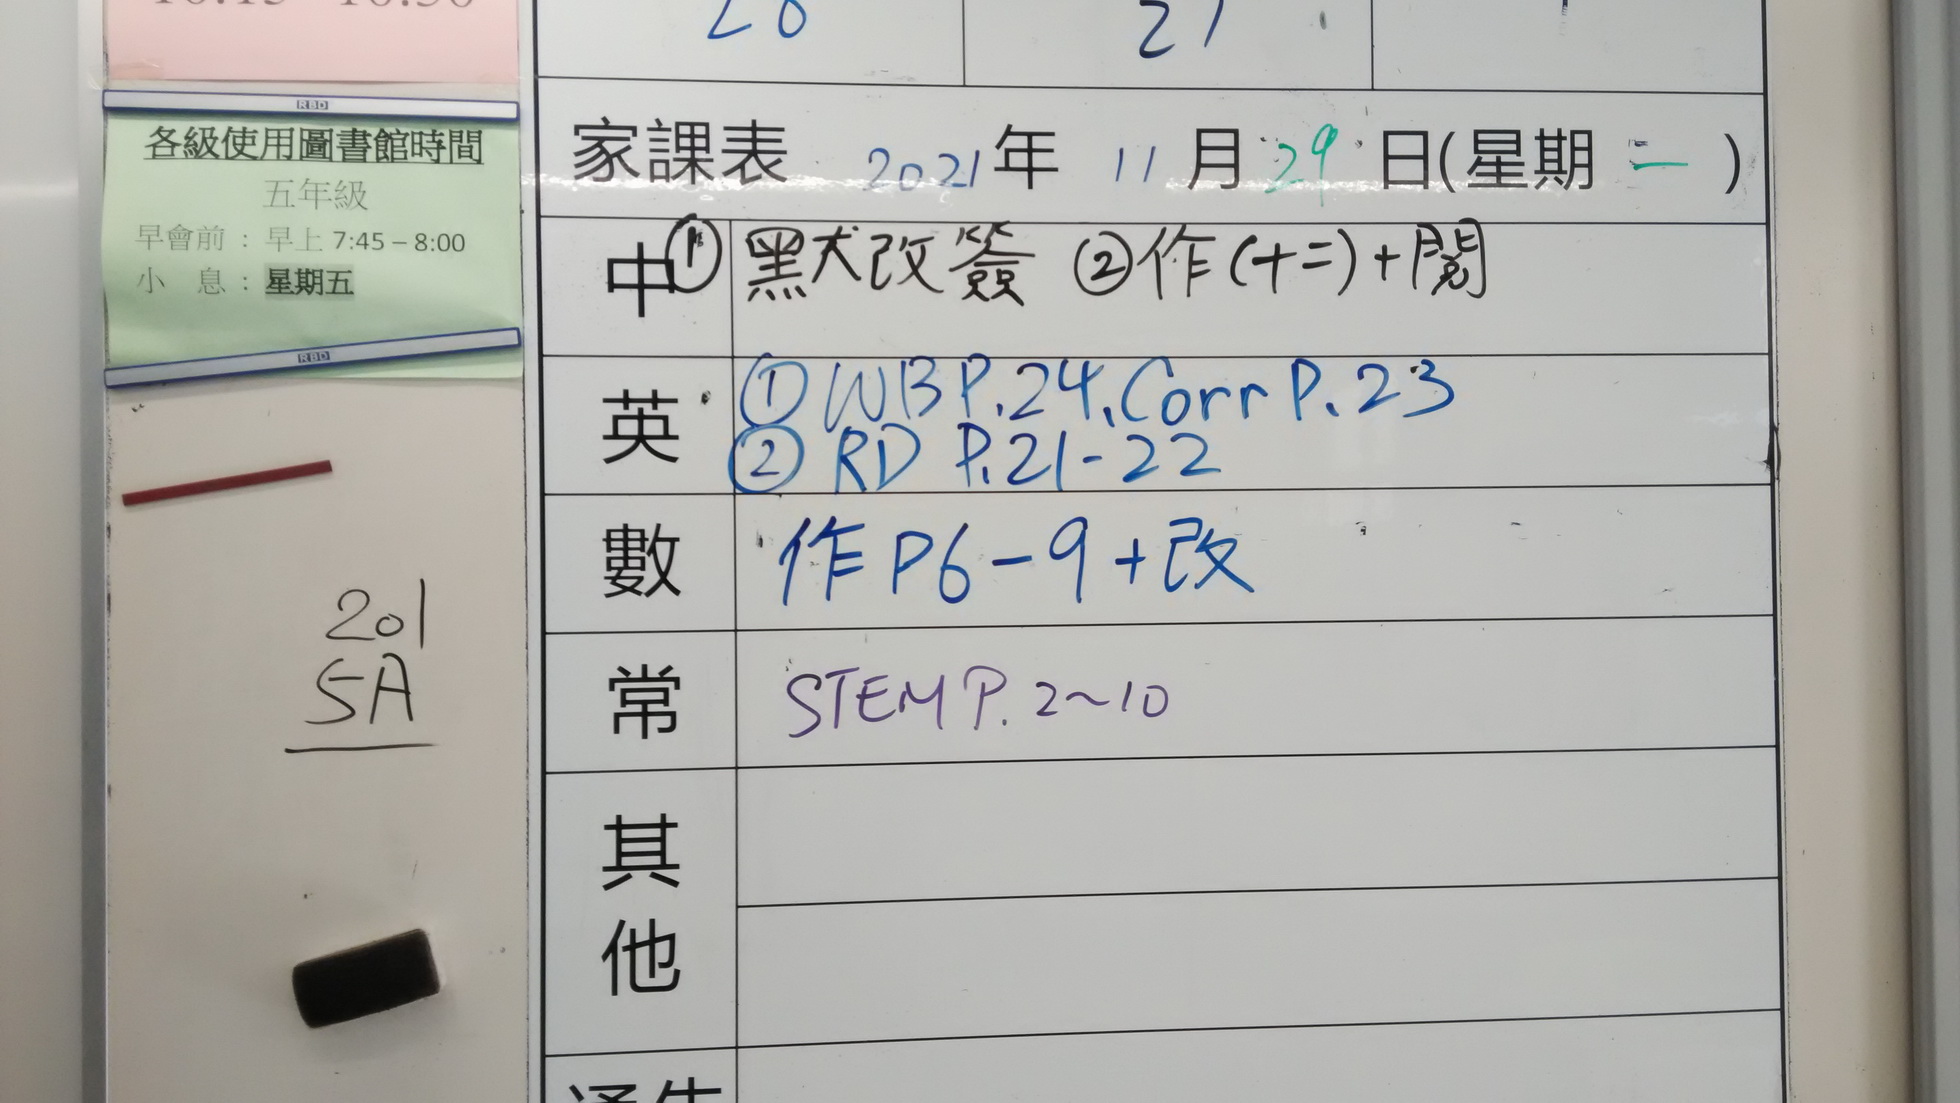 28
27
RBD
各級使用圖書館時間
五年級
早會前：早上 7:45 – 8:00
小 息：星期五
RBD
201
5A
家課表 2021年 11月29日(星期一)
中 ①黑犬改簽 ②作(十二)+閱
英 ①WB P.24, Corr P.23
②RD P.21-22
數 作P6-9+改
常 STEM P.2~10
其他